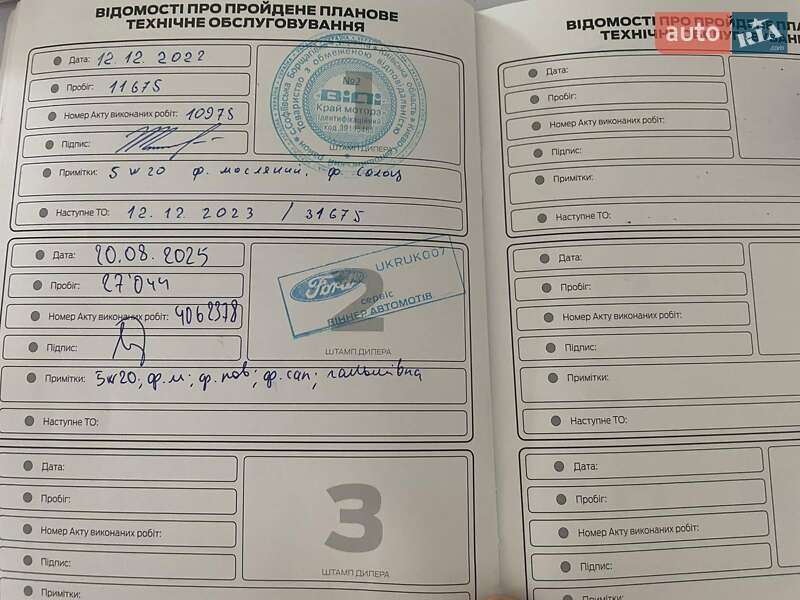 ВІДОМОСТІ ПРО ПРОЙДЕНЕ ПЛАНОВЕ
ТЕХНІЧНЕ ОБСЛУГОВУВАННЯ
Дата: 12.12.2022
Пробіг: 11675
Номер Акту виконаних робіт: 10975
Підпис:
№2
ВіДі
Край мотора
Ідентифікаційний
код
Товариство з обмеженою відповідальністю
ШТАМП ДИЛЕРА
Примітки: 5w20 ф. масляний. ф. салон
Наступне ТО: 12.12.2023 / 31675
Дата: 20.08.2025
Пробіг: 27'044
Номер Акту виконаних робіт: 4062378
Підпис:
UKRUK007
Ford
сервіс
ВІННЕР АВТОМОТІВ
2
ШТАМП ДИЛЕРА
Примітки: 5w20; ф.м; ф.пов; ф.сал; гальмівна
Наступне ТО:
Дата:
Пробіг:
Номер Акту виконаних робіт:
Підпис:
Примітки:
3
ШТАМП ДИЛЕРА
ВІДОМОСТІ ПРО ПРОЙДЕНЕ ПЛА
ТЕХНІЧНЕ ОБСЛУГОВУВАНН
auto RIA
.com
Дата:
Пробіг:
Номер Акту виконаних робіт:
Підпис:
Примітки:
Наступне ТО:
Дата:
Пробіг:
Номер Акту виконаних робіт:
Підпис:
Примітки:
Наступне ТО:
Дата:
Пробіг:
Номер Акту виконаних робіт:
Підпис: